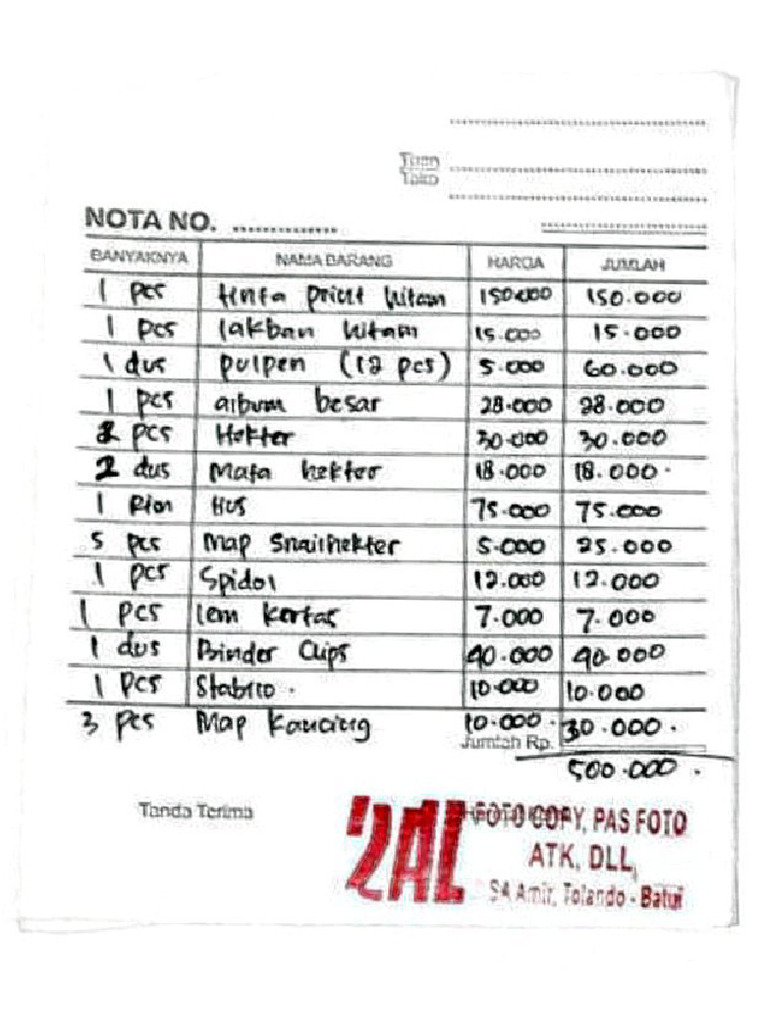 Tuan
Toko
NOTA NO.
BANYAKNYA NAMA BARANG HARGA JUMLAH
1 pcs tinta print hitam 150.000 150.000
1 pcs lakban hitam 15.000 15.000
1 dus pulpen (12 pcs) 5.000 60.000
1 pcs album besar 28.000 28.000
2 pcs Hekter 30.000 30.000
2 dus Mata hekter 18.000 18.000.
1 Rim HVS 75.000 75.000
5 pcs Map Snailhekter 5.000 25.000
1 pcs Spidol 12.000 12.000
1 pcs lem kertas 7.000 7.000
1 dus Binder Clips 40.000 40.000
1 pcs Stabilo. 10.000 10.000
3 pcs Map Kancing 10.000. 30.000.
Jumlah Rp.
500.000.
Tanda Terima
2AL FOTO COPY, PAS FOTO
ATK, DLL,
Tolando - Batui